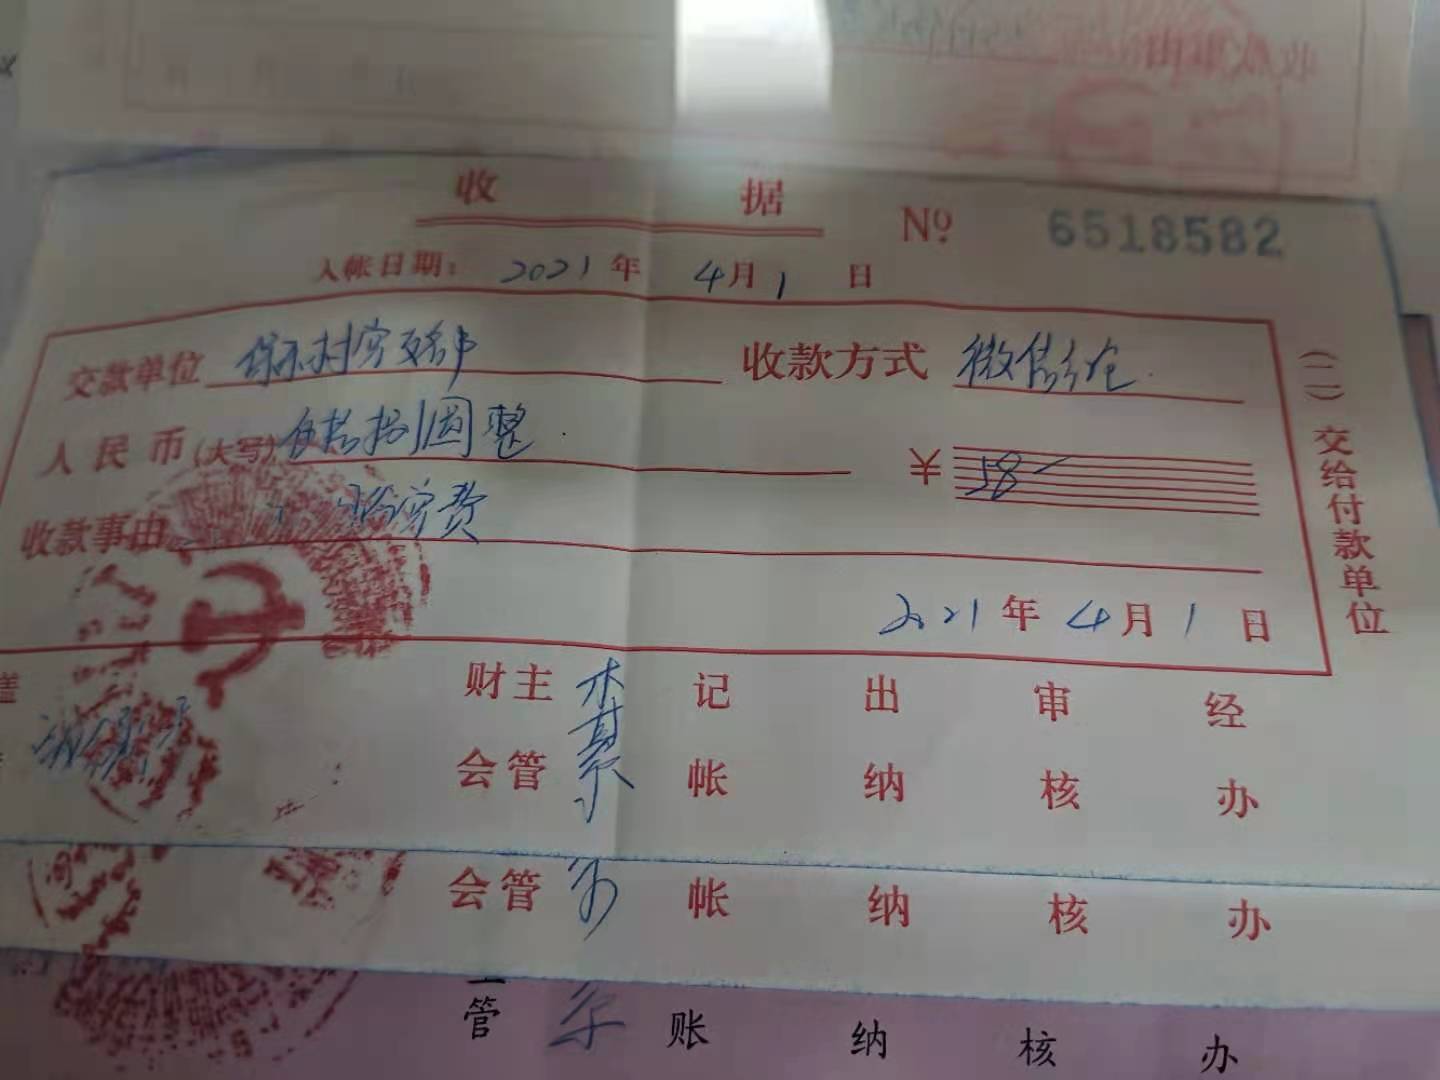 收 据 № 6518582
入帐日期: 2021 年 4 月 1 日
交款单位 收款方式 微信
人民币(大写) 伍拾捌圆整 ¥ 58
收款事由 费
2021 年 4 月 1 日
(二) 交给付款单位
盖 财会 主管 记帐 出纳 审核 经办
会 管 帐 纳 核 办
管 账 纳 核 办